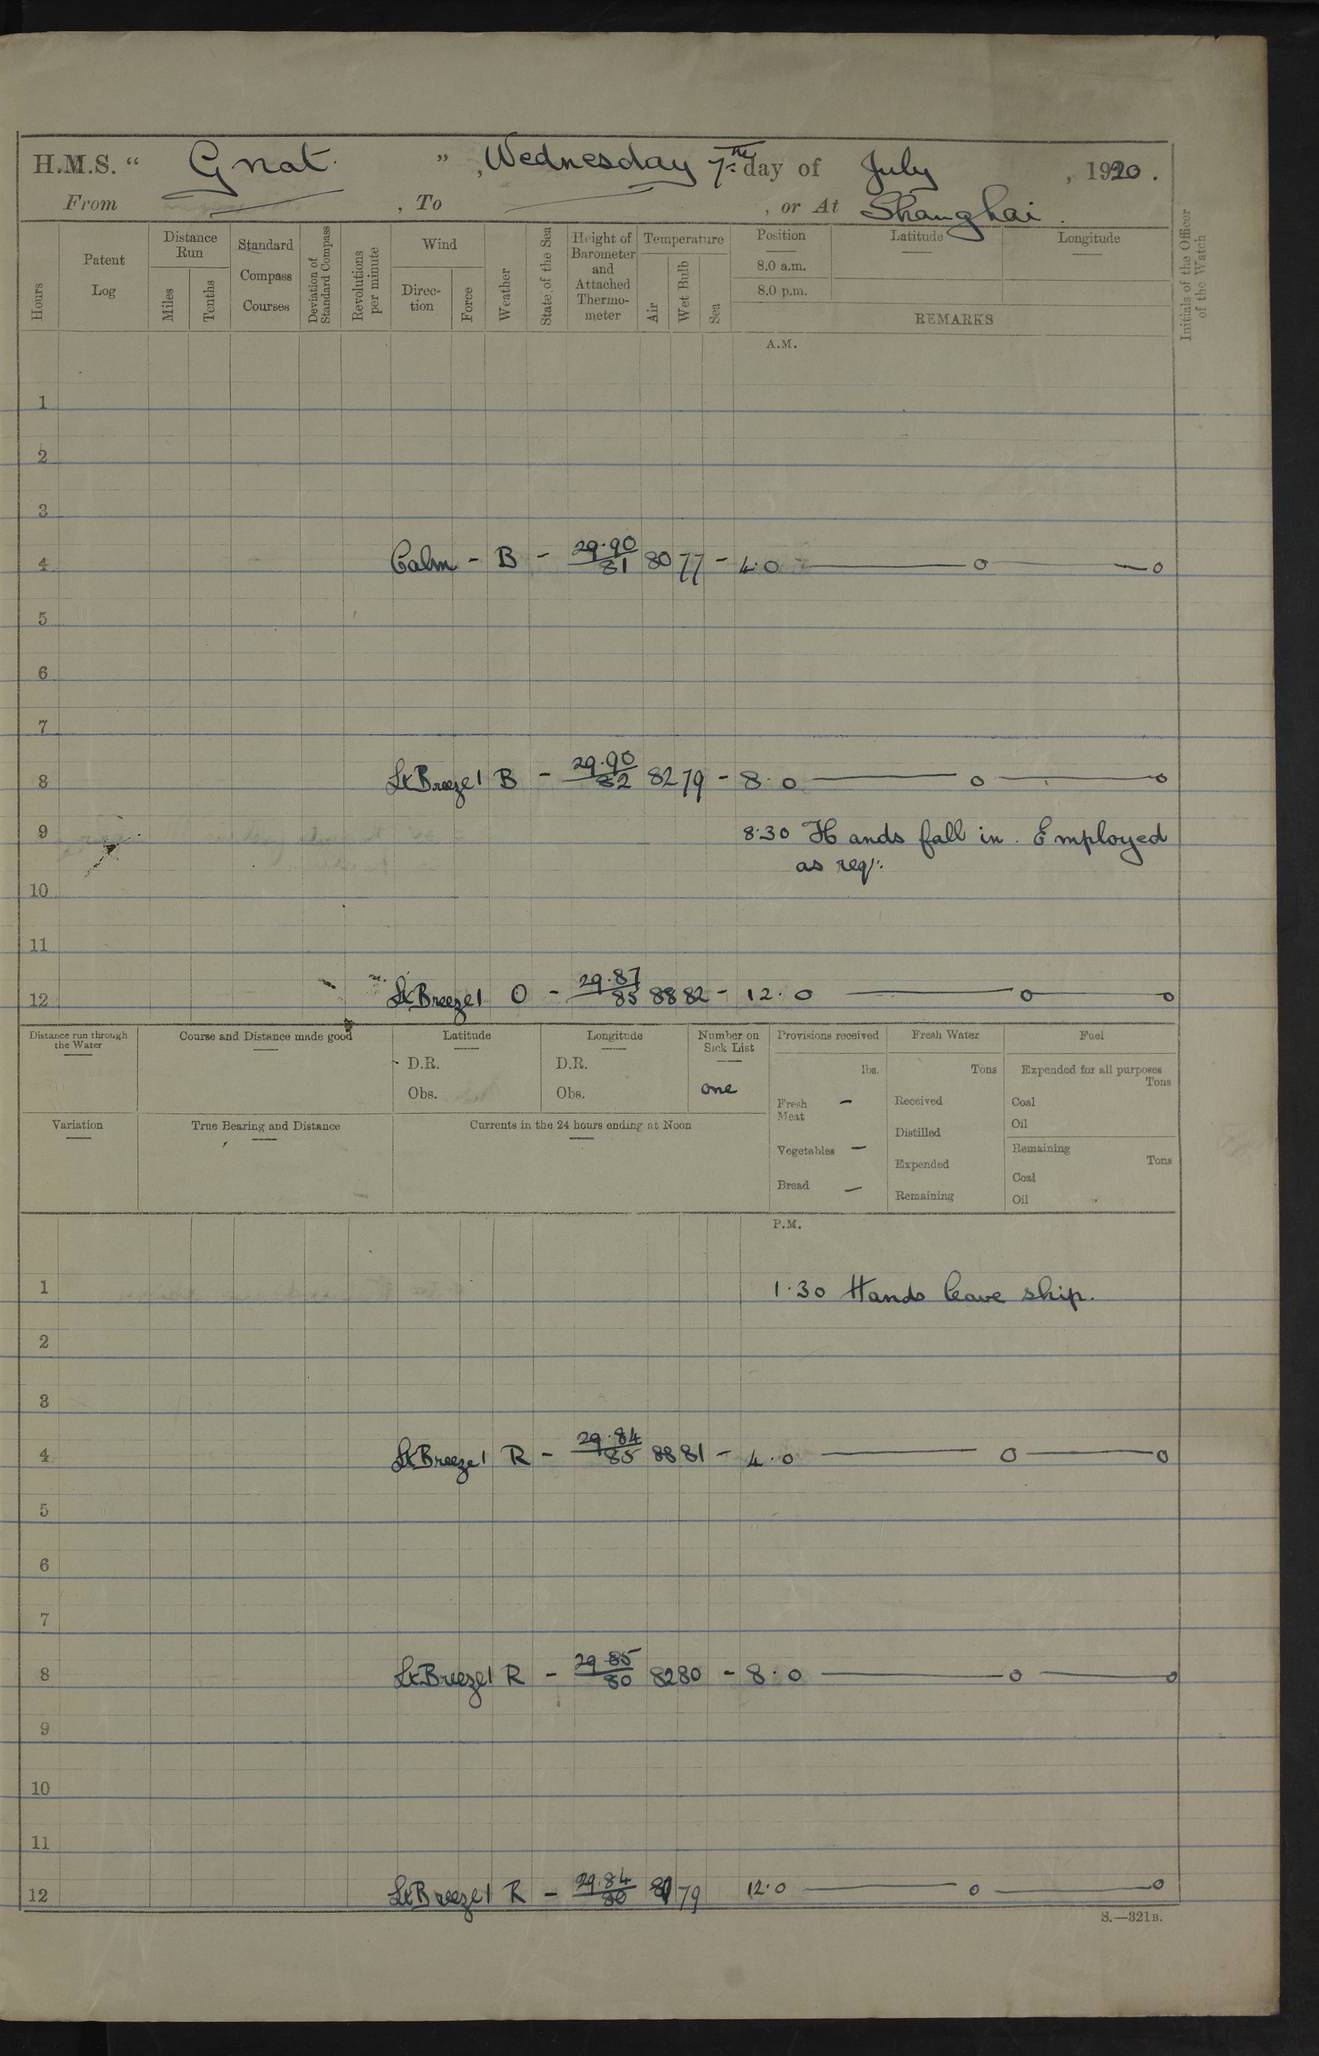 H.M.S. “ Gnat. ”, Wednesday 7th day of July, 1920.
From , To , or At Shanghai.
Hours
Patent Log
Distance Run
Miles
Tenths
Standard Compass Courses
Deviation of Standard Compass
Revolutions per minute
Wind
Direction
Force
Weather
State of the Sea
Height of Barometer and Attached Thermometer
Temperature
Air
Wet Bulb
Sea
Position
8.0 a.m.
8.0 p.m.
Latitude
Longitude
REMARKS
Initials of the Officer of the Watch
A.M.
1
2
3
4 Calm - B - 29.90/81 80 77 - 4.0 — o — o
5
6
7
8 Lt Breeze 1 B - 29.90/82 82 79 - 8.0 — o — o
9 8.30 Hands fall in. Employed
as req:
10
11
12 Lt Breeze 1 O - 29.87/85 88 82 - 12.0 — o — o
Distance run through the Water
Course and Distance made good
Latitude
D.R.
Obs.
Longitude
D.R.
Obs.
Number on Sick List
one
Provisions received
lbs.
Fresh Meat -
Vegetables -
Bread -
Fresh Water
Tons
Received
Distilled
Expended
Remaining
Fuel
Expended for all purposes
Tons
Coal
Oil
Remaining
Tons
Coal
Oil
Variation
True Bearing and Distance
Currents in the 24 hours ending at Noon
P.M.
1 1.30 Hands leave ship.
2
3
4 Lt Breeze 1 R - 29.84/85 88 81 - 4.0 — o — o
5
6
7
8 Lt Breeze 1 R - 29.85/80 82 80 - 8.0 — o — o
9
10
11
12 Lt Breeze 1 R - 29.84/80 79 12.0 — o — o
S.—321B.